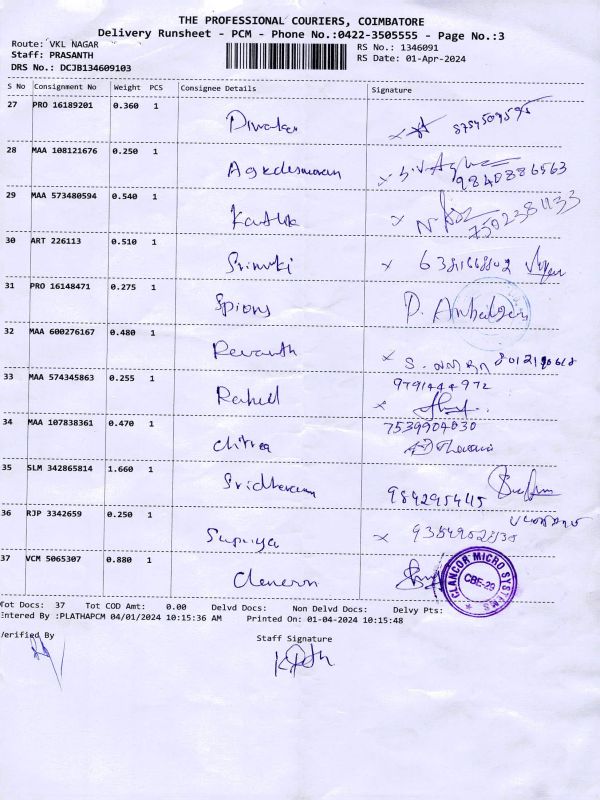 THE PROFESSIONAL COURIERS, COIMBATORE
Delivery Runsheet - PCM - Phone No.:0422-3505555 - Page No.:3
Route: VKL NAGAR RS No.: 1346091
Staff: PRASANTH RS Date: 01-Apr-2024
DRS No.: DCJB134609103
S No Consignment No Weight PCS Consignee Details Signature
27 PRO 16189201 0.360 1
Diwakar
28 MAA 108121676 0.250 1
9840886563
29 MAA 573480594 0.540 1
Karthik
30 ART 226113 0.510 1
31 PRO 16148471 0.275 1
Spions
32 MAA 600276167 0.480 1
Revanth
33 MAA 574345863 0.255 1 9791444972
Rahul
34 MAA 107838361 0.470 1 7539904030
Chitra
35 SLM 342865814 1.660 1
Sridharan 984295445
36 RJP 3342659 0.250 1
Supriya
37 VCM 5065307 0.880 1
CLANCOR MICRO SYSTEMS CBE-29
Tot Docs: 37 Tot COD Amt: 0.00 Delvd Docs: Non Delvd Docs: Delvy Pts:
Entered By :PLATHAPCM 04/01/2024 10:15:36 AM Printed On: 01-04-2024 10:15:48
Verified By Staff Signature